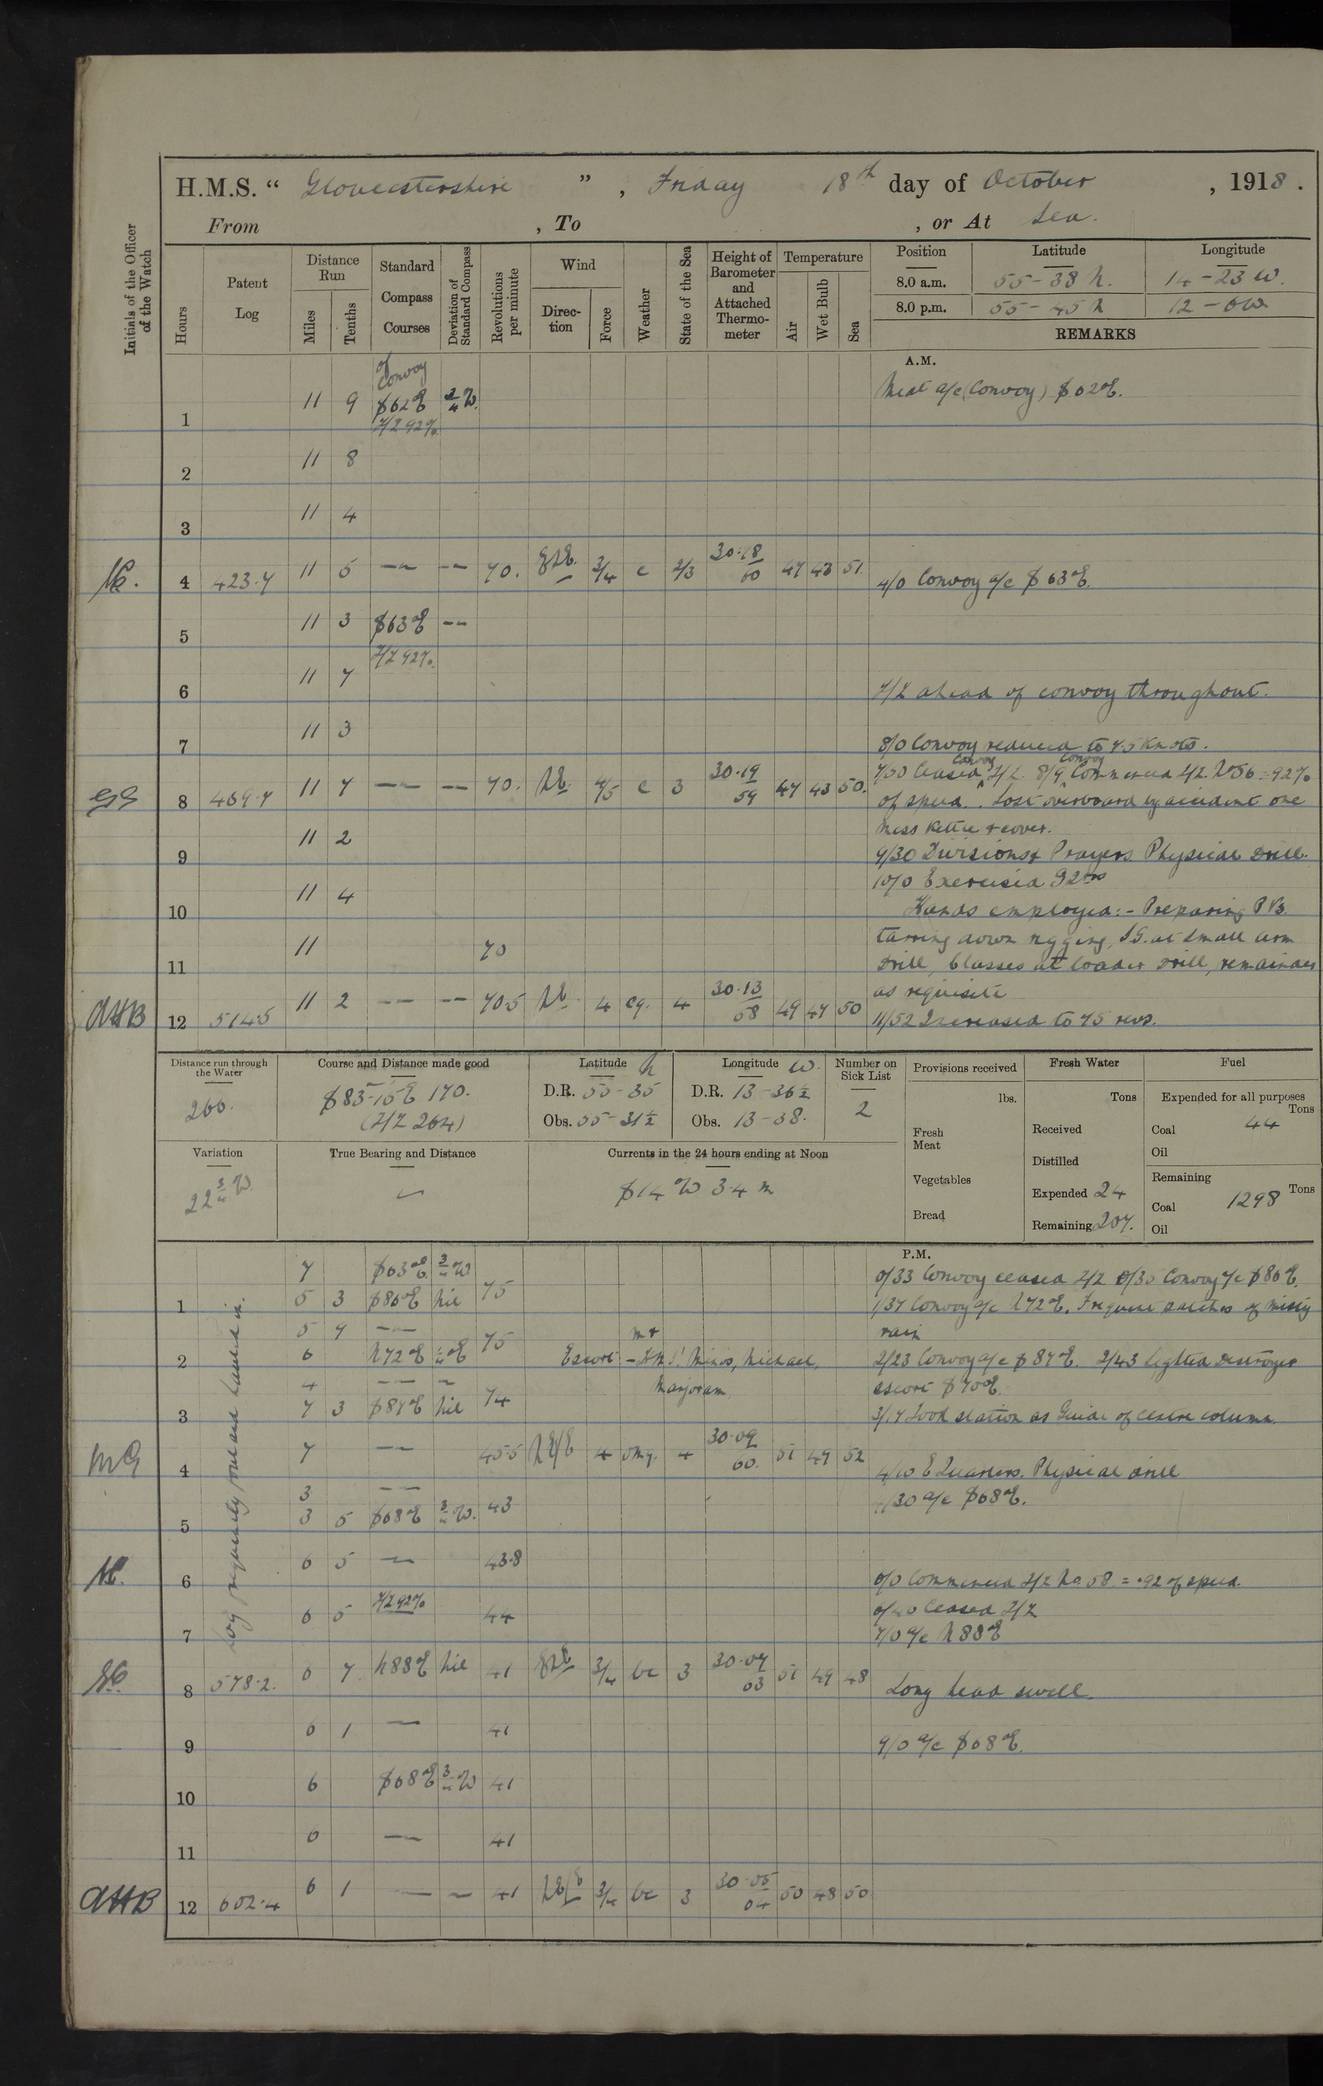 H.M.S. “ Gloucestershire ” , Friday 18th day of October , 1918 .
From , To , or At Sea.
Initials of the Officer of the Watch
Hours
Patent Log
Distance Run
Miles
Tenths
Standard Compass Courses
Deviation of Standard Compass
Revolutions per minute
Wind
Direction
Force
Weather
State of the Sea
Height of Barometer and Attached Thermometer
Temperature
Air
Wet Bulb
Sea
Position Latitude Longitude
8.0 a.m. 55-38 N. 14-23 W.
8.0 p.m. 55-45 N 12-6W
REMARKS
A.M.
of Convoy
1 11 9 S62°E 3/4 W. Mast a/c (Convoy) S62°E.
Z/Z 92%
2 11 8
3 11 4
4 423.7 11 5 -- -- 70. 3/4 c 2/3 30.18 60 47 43 51
4/0 Convoy a/c S 63°E.
5 11 3 S63°E --
Z/Z 92%
6 11 7
Z/Z ahead of convoy throughout.
7 11 3
8/0 Convoy reduced to 7.5 Knots.
8 469.7 11 7 -- -- 70. NE. 4/5 c 3 30.19 59 47 43 50.
7/50 Ceased Convoy Z/Z. 8/9 Convoy Commenced Z/Z No 56 = 92%
of speed. Lost overboard by accident one
Mess Kettle & cover.
9 11 2
9/30 Divisions & Prayers Physical Drill.
10/0 Exercised
10 11 4
Hands employed:- Preparing P.Vs.
11 11 70
tarring down rigging, S.G. at Small arm
Drill, Classes at loader Drill, remainder
as requisite
AHB 12 514.5 11 2 -- -- 70.5 NE 4 cq. 4 30.13 58 49 47 50
11/52 Increased to 75 revs.
Distance run through the Water
266.
Course and Distance made good
S 83-15 E 170.
(Z/Z 264)
Latitude N
D.R. 55-35
Obs. 55-31½
Longitude W.
D.R. 13-36½
Obs. 13-38.
Number on Sick List
2
Provisions received
lbs.
Fresh Meat
Vegetables
Bread
Fresh Water
Tons
Received
Distilled
Expended 24
Remaining 207.
Fuel
Expended for all purposes
Tons
Coal 44
Oil
Remaining
Tons
Coal 1298
Oil
Variation
22 3/4 W
True Bearing and Distance
Currents in the 24 hours ending at Noon
S14 W 3.4 m
P.M.
7 S63°E 3/4 W
0/33 Convoy ceased Z/Z 0/35 Convoy a/c S86°E.
1 5 3 S86°E Nil 75
1/37 Convoy a/c N72°E. Frequent patches of misty
rain
5 4 --
2 6 N72°E 75
Escort - H.M.S! Minos, Michael,
Marjoram
2/23 Convoy a/c S 87°E. 2/43 Sighted Destroyer
escort S 70°E.
4 -- --
3 7 3 S87°E Nil 74
3/17 Took station as Guide of centre column.
4 7 -- 45.5 4 omq. 4 30.09 60. 51 49 52
4/10 E Quarters. Physical drill
4/30 a/c S68°E.
3 --
5 3 5 S68°E 3/4 W. 43
6 6 5 -- 43.8
6/0 Commenced Z/Z No. 58. = .92 of speed.
Z/Z 92%
6/40 Ceased Z/Z
7 6 5 44
7/0 a/c N88°E
8 578.2. 6 7 N88°E Nil 41 3/4 bc 3 30.07 63 51 49 48
Long head swell.
9 6 1 -- 41
9/0 a/c S68°E.
10 6 S68°E 3/4 W 41
11 6 -- 41
AHB 12 602.4 6 1 -- -- 41 3/4 bc 3 30.05 64 50 48 50
Log
hauled in.